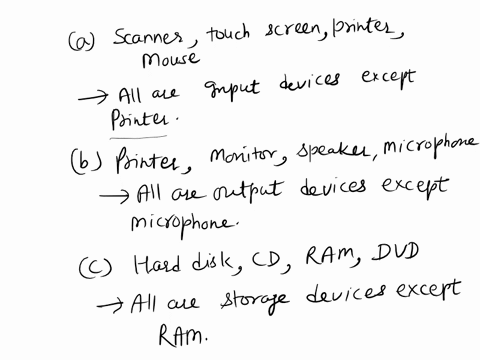 (a) Scanner, touch screen, printer,
mouse
→ All are Input devices except
Printer.
(b) Printer, Monitor, speaker, microphone
→ All are output devices except
microphone.
(c) Hard disk, CD, RAM, DVD
→ All are storage devices except
RAM.